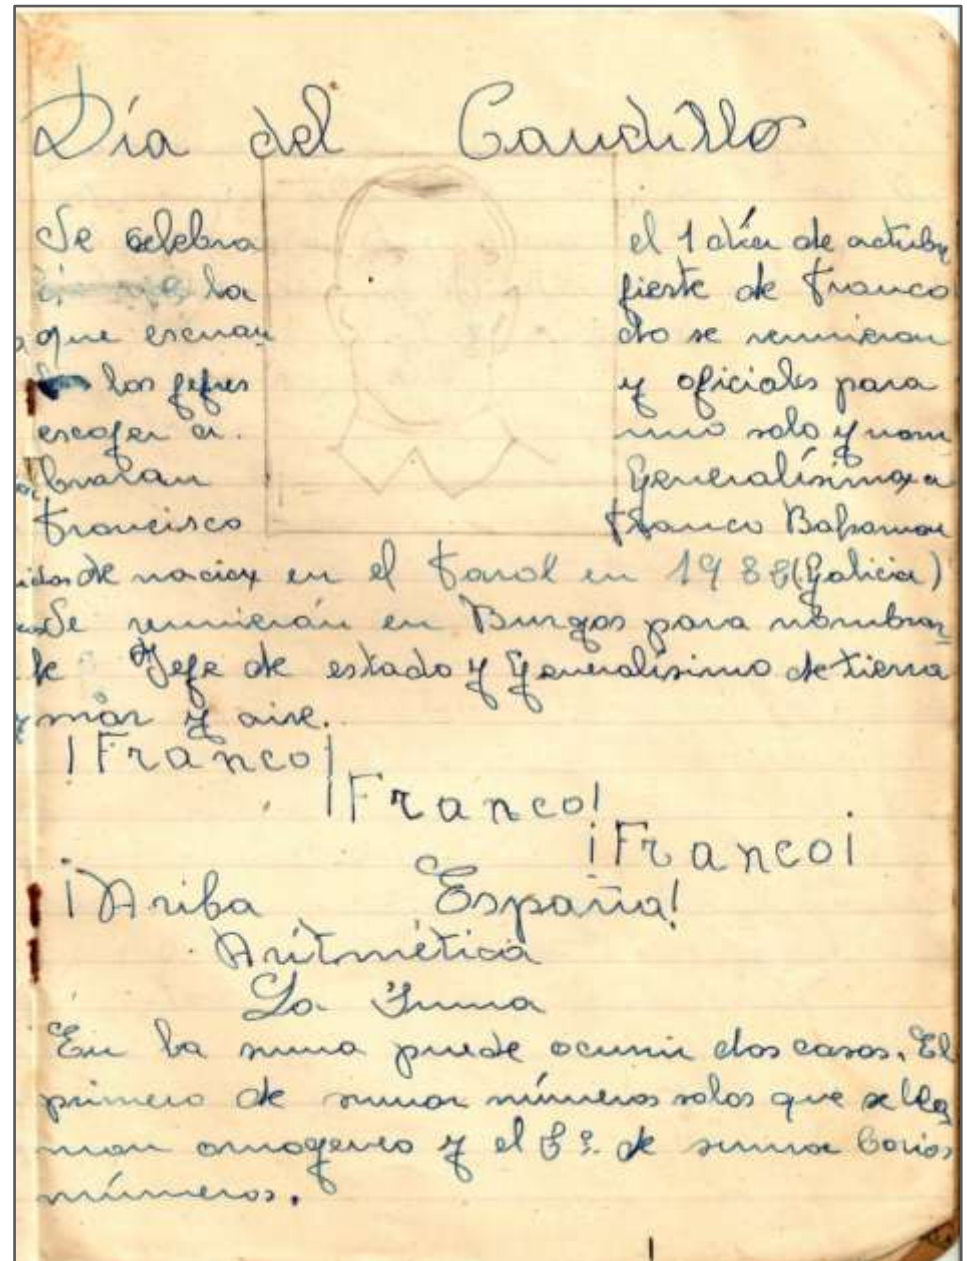 Día del Caudillo
Se celebra el 1 día de octubre
la fieste de Franco
que escuan do se reunieron
los gefes y oficiales para
escojer a uno solo y nom
bralan Generalísimo a
Francisco Franco Bahamon
de nacior en el Farol en 1988 (Galicia)
Se reunierán en Burgos para nombrar
le Jefe de estado y Generalisimo de tierra
mar y aire.
¡Franco!
¡Franco!
¡Franco¡
¡Ariba España!
Aritmética
La Suma
En la suma puede ocurrir dos casos. El
primero de sumar números solos que se lla
man omogeneo y el 2º. de sumar barios
números.